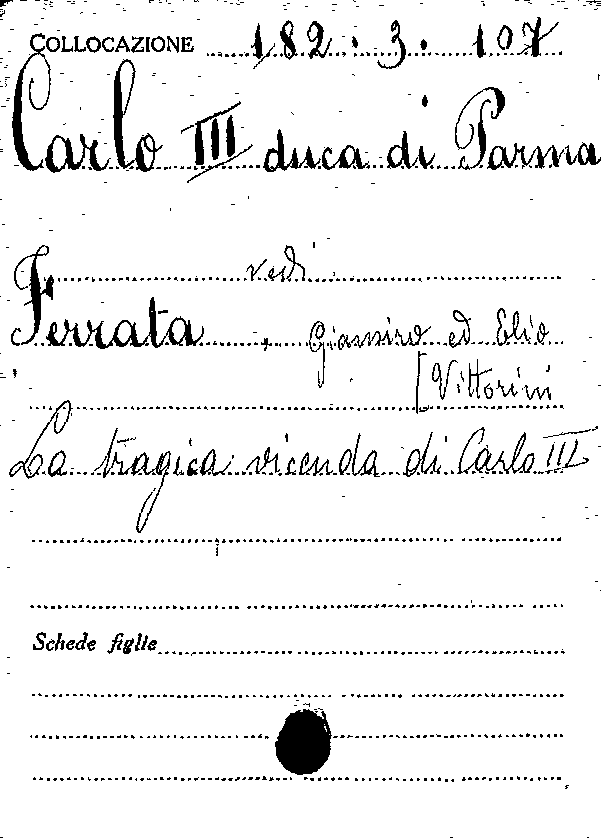 COLLOCAZIONE 182.3.107
Carlo III duca di Parma
vedi
Ferrata, Giansiro ed Elio
[Vittorini
La tragica vicenda di Carlo III
Schede figlie